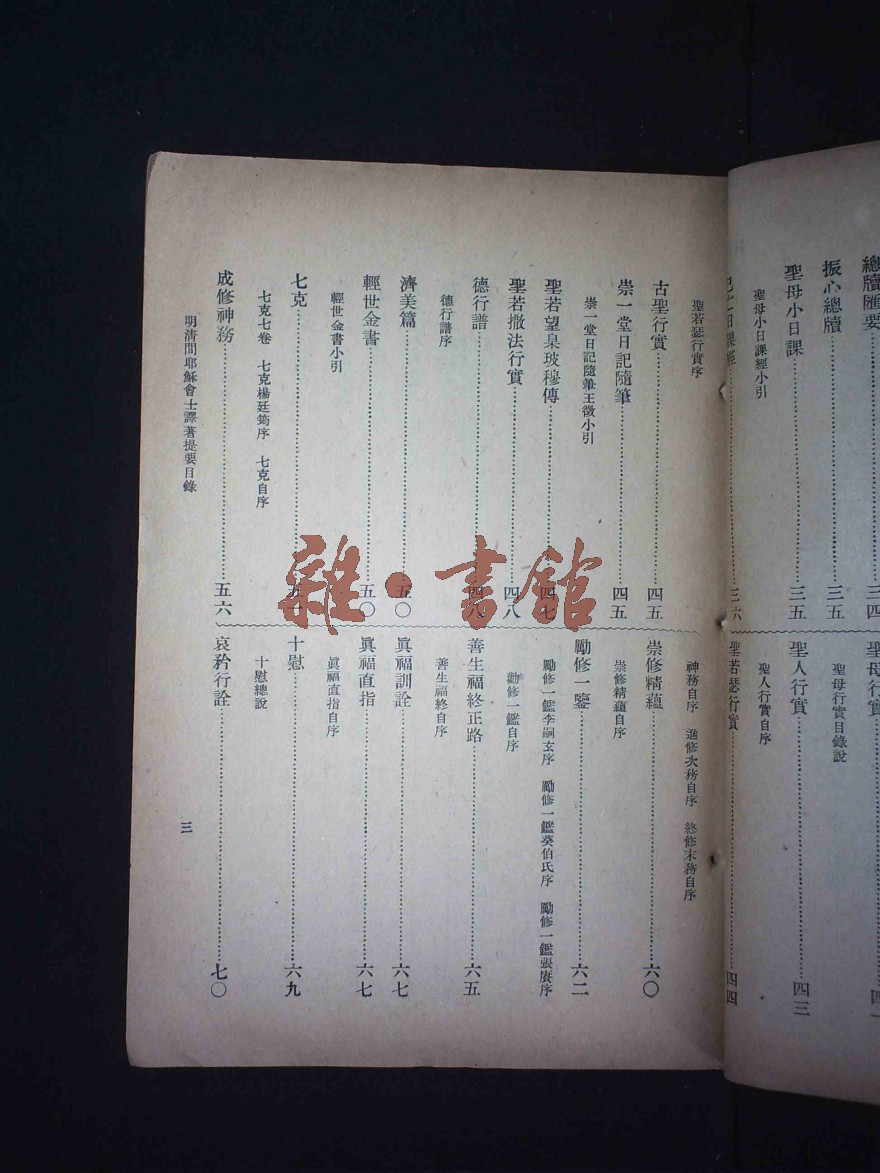 總牘匯要
振心總牘……三五
聖母小日課……三五
聖母小日課經小引
日課經……三六
聖人行實……四三
聖母行實目錄說
聖人行實自序
聖若瑟行實……四四
聖若瑟行實序
古聖行實……四五
崇一堂日記隨筆……四五
崇一堂日記隨筆王徵小引
聖若望臬玻穆傳……四七
聖若撒法行實……四八
德行譜……四八
德行譜序
濟美篇……五〇
輕世金書……五〇
輕世金書小引
七克……五一
七克七卷 七克楊廷筠序 七克自序
成修神務……五六
神務自序 進修次務自序 終修末務自序
崇修精蘊……六〇
崇修精蘊自序
勵修一鑒……六二
勵修一鑑李嗣玄序 勵修一鑑葵伯氏序 勵修一鑑張賡序
勸修一鑑自序
善生福終正路……六五
善生福終自序
眞福訓詮……六七
眞福直指……六七
眞福直指自序
十慰……六九
十慰總說
哀矜行詮……七〇
明清間耶穌會士譯著提要目錄
三
雜·書館